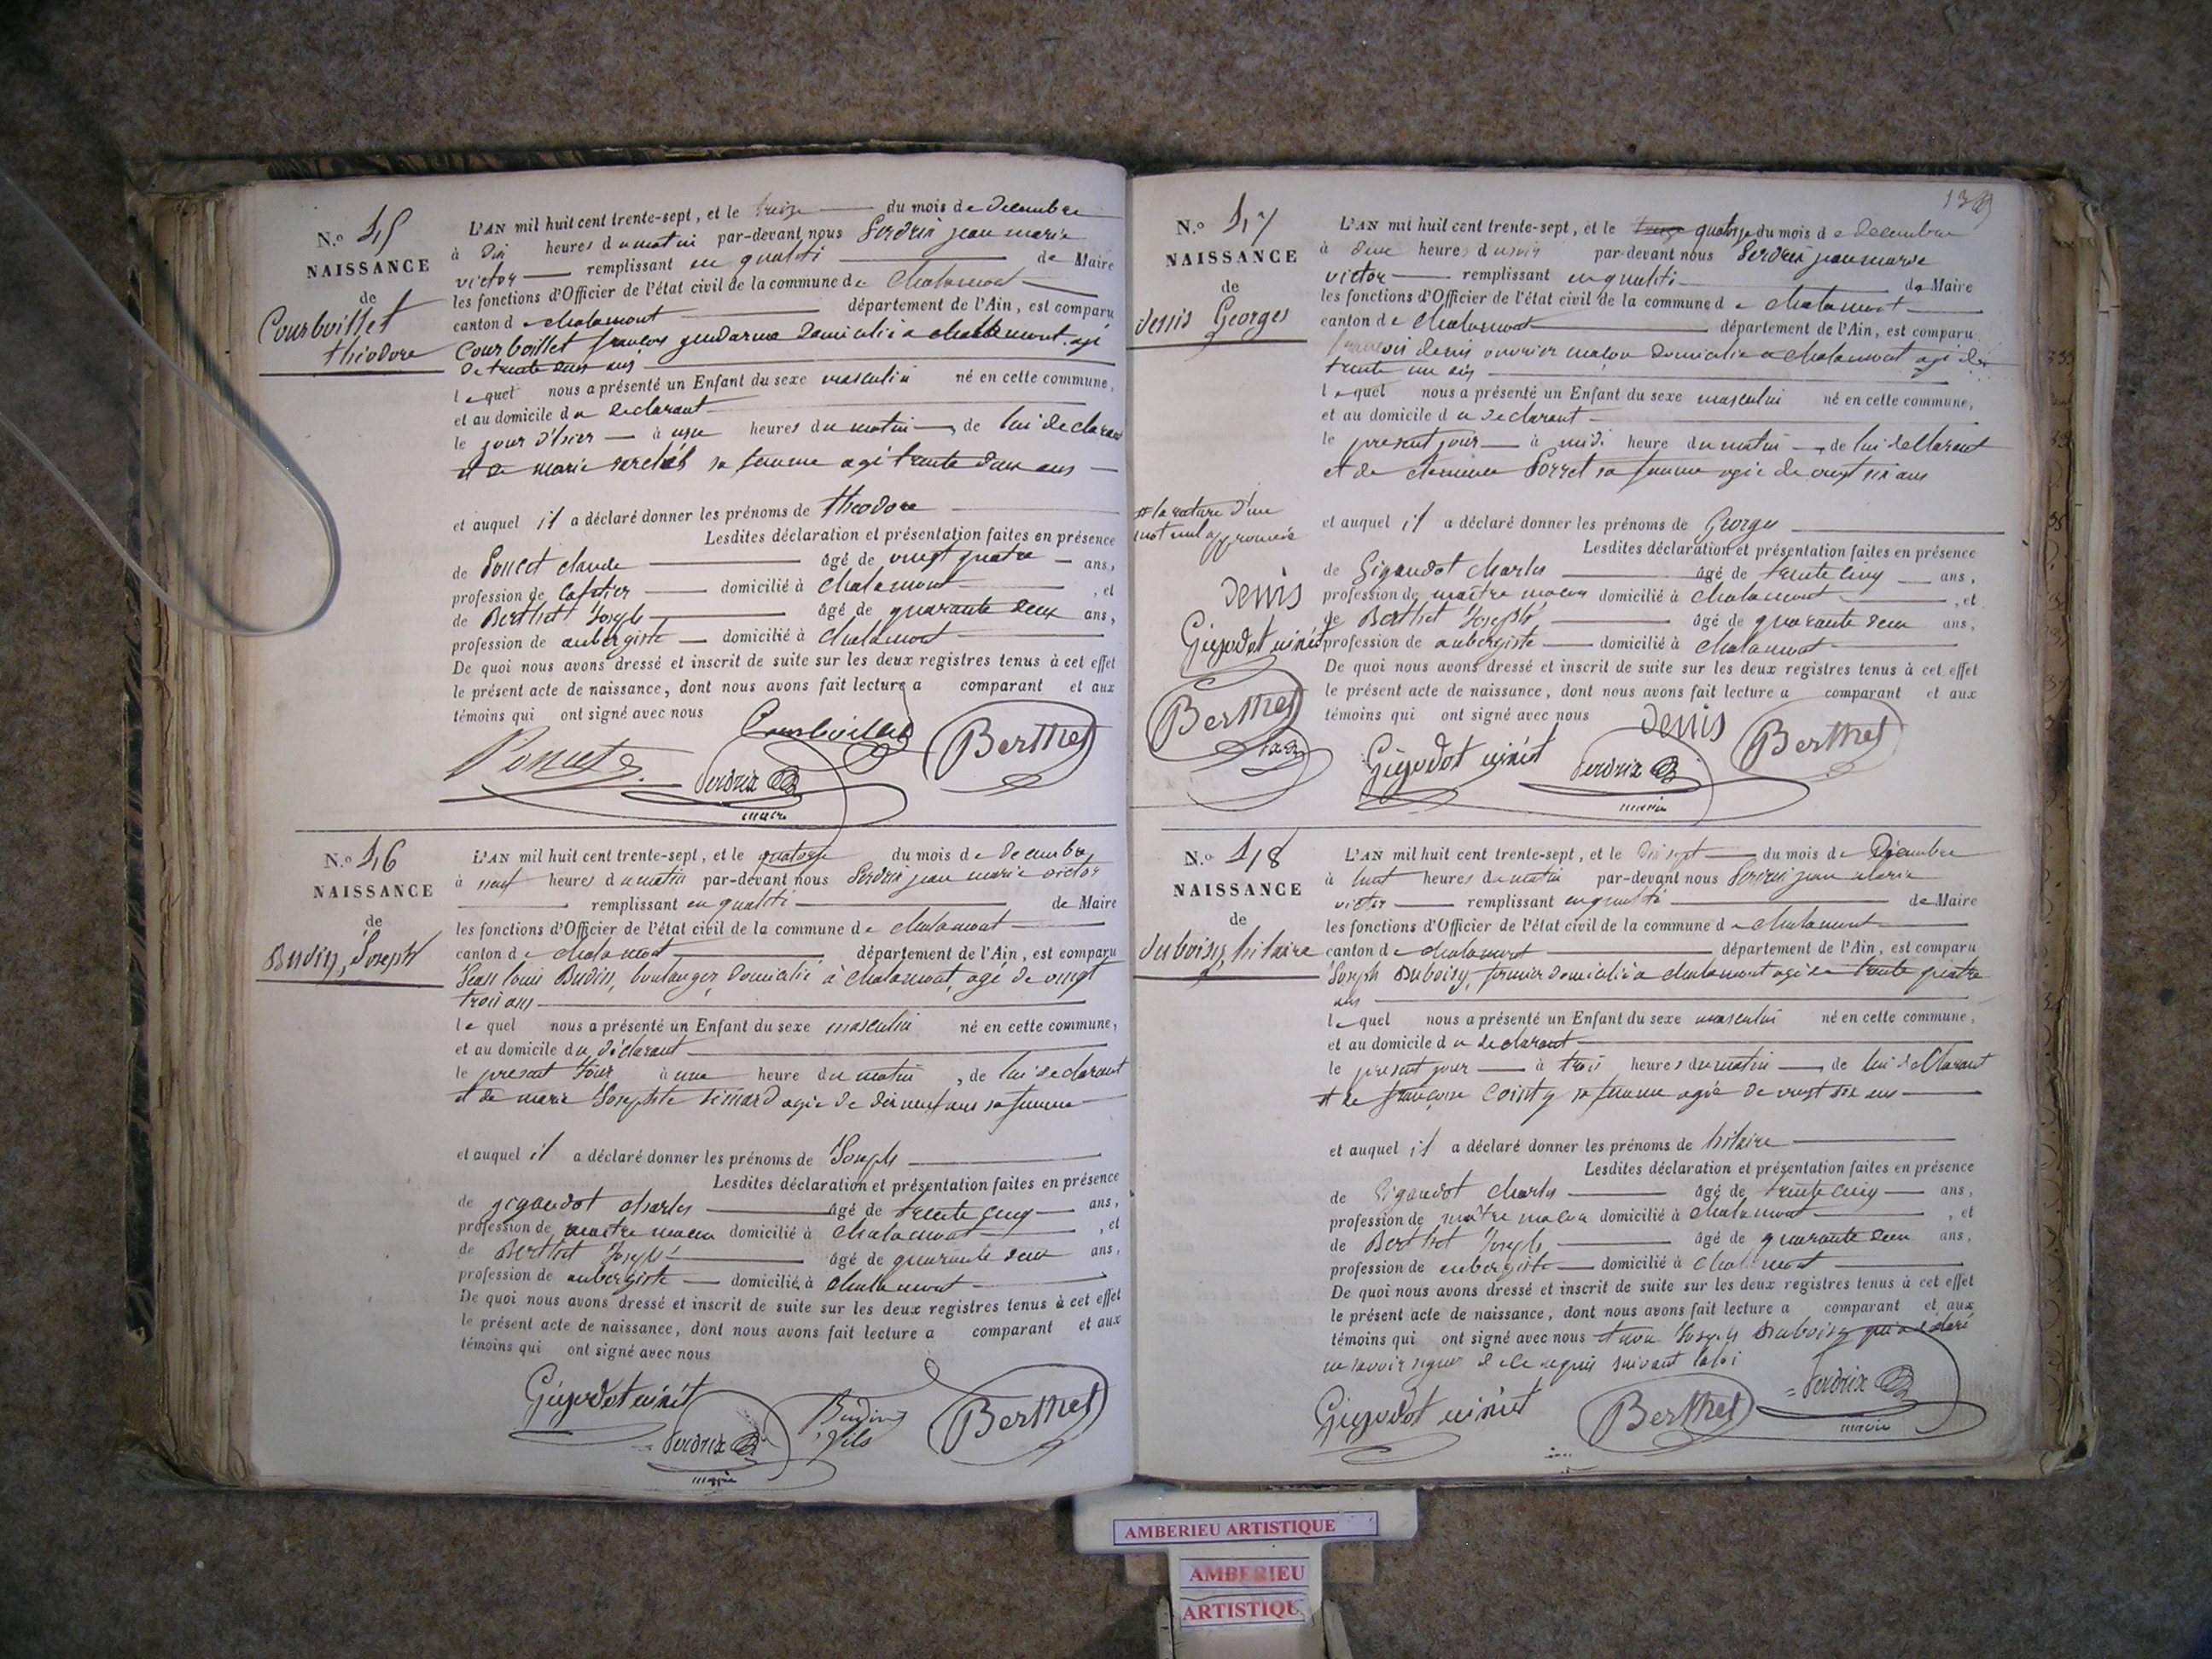 N.o 45
NAISSANCE
de
Courboillet
théodore
L'AN mil huit cent trente-sept, et le treize du mois de decembre
à dix heures du matin par-devant nous Perdrix jean marie
victor remplissant en qualité de Maire
les fonctions d'Officier de l'état civil de la commune de Chalamont
canton de chalamont département de l'Ain, est comparu
Courboillet françois gendarme domicilié a chalamont, agé
de trente deux ans
lequel nous a présenté un Enfant du sexe masculin né en cette commune,
et au domicile du declarant
le jour d'hier à une heures du matin, de lui declarant
et de marie sa femme agé trente deux ans
et auquel il a déclaré donner les prénoms de théodore
Lesdites déclaration et présentation faites en présence
de Poncet claude âgé de vingt quatre ans,
profession de cafetier domicilié à chalamont, et
de Berthet Joseph âgé de quarante deux ans,
profession de aubergiste domicilié à Chalamont
De quoi nous avons dressé et inscrit de suite sur les deux registres tenus à cet effet
le présent acte de naissance, dont nous avons fait lecture a comparant et aux
témoins qui ont signé avec nous
Courboillet
Berthet
Poncet
Perdrix
maire
N.o 46
NAISSANCE
de
Budin, Joseph
L'AN mil huit cent trente-sept, et le quatorze du mois de decembre
à neuf heures du matin par-devant nous Perdrix jean marie victor
remplissant en qualité de Maire
les fonctions d'Officier de l'état civil de la commune de chalamont
canton de chalamont département de l'Ain, est comparu
Jean louis Budin, boulanger, domicilié à chalamont, agé de vingt
trois ans
lequel nous a présenté un Enfant du sexe masculin né en cette commune,
et au domicile du déclarant
le présent jour à une heure du matin, de lui declarant
et de marie Josephte agée de dix neuf ans sa femme
et auquel il a déclaré donner les prénoms de Joseph
Lesdites déclaration et présentation faites en présence
de gigaudot charles âgé de trente cinq ans,
profession de maitre macon domicilié à Chalamont, et
de Berthet Joseph âgé de quarante deux ans,
profession de aubergiste domicilié à chalamont
De quoi nous avons dressé et inscrit de suite sur les deux registres tenus à cet effet
le présent acte de naissance, dont nous avons fait lecture a comparant et aux
témoins qui ont signé avec nous
Gigodot
Perdrix
maire
Budin
fils
Berthet
N.o 47
NAISSANCE
de
denis Georges
L'AN mil huit cent trente-sept, et le quatorze du mois de decembre
à deux heures du soir par-devant nous Perdrix jean marie
victor remplissant en qualité de Maire
les fonctions d'Officier de l'état civil de la commune de chalamont
canton de Chalamont département de l'Ain, est comparu
françois denis ouvrier maçon domicilié a chalamont agé de
trente un ans
lequel nous a présenté un Enfant du sexe masculin né en cette commune,
et au domicile du declarant
le present jour à midi heure du matin, de lui declarant
et de sa femme agée de vingt six ans
la rature d'un
mot nul approuvée
Denis
Gigodot
Berthet
et auquel il a déclaré donner les prénoms de Georges
Lesdites déclaration et présentation faites en présence
de Gigaudot charles âgé de trente cinq ans,
profession de maitre macon domicilié à Chalamont, et
de Berthet Joseph âgé de quarante deux ans,
profession de aubergiste domicilié à chalamont
De quoi nous avons dressé et inscrit de suite sur les deux registres tenus à cet effet
le présent acte de naissance, dont nous avons fait lecture a comparant et aux
témoins qui ont signé avec nous
Denis
Berthet
Gigodot
Perdrix
maire
N.o 48
NAISSANCE
de
duboisy, hilaire
L'AN mil huit cent trente-sept, et le dix sept du mois de Décembre
à huit heures du matin par-devant nous Perdrix jean marie
victor remplissant en qualité de Maire
les fonctions d'Officier de l'état civil de la commune de chalamont
canton de chalamont département de l'Ain, est comparu
Joseph Duboisy, fermier domicilié a chalamont agé de trente quatre
ans
lequel nous a présenté un Enfant du sexe masculin né en cette commune,
et au domicile du declarant
le present jour à trois heures du matin de lui declarant
et de françoise Cointy sa femme agée de vingt six ans
et auquel il a déclaré donner les prénoms de hilaire
Lesdites déclaration et présentation faites en présence
de Gigaudot charles âgé de trente cinq ans,
profession de maitre macon domicilié à Chalamont, et
de Berthet Joseph âgé de quarante deux ans,
profession de aubergiste domicilié à Chalamont
De quoi nous avons dressé et inscrit de suite sur les deux registres tenus à cet effet
le présent acte de naissance, dont nous avons fait lecture a comparant et aux
témoins qui ont signé avec nous Joseph Duboisy qui a déclaré
ne savoir signer de ce requis suivant la loi
Gigodot
Berthet
Perdrix
maire
AMBERIEU ARTISTIQUE
AMBERIEU
ARTISTIQUE